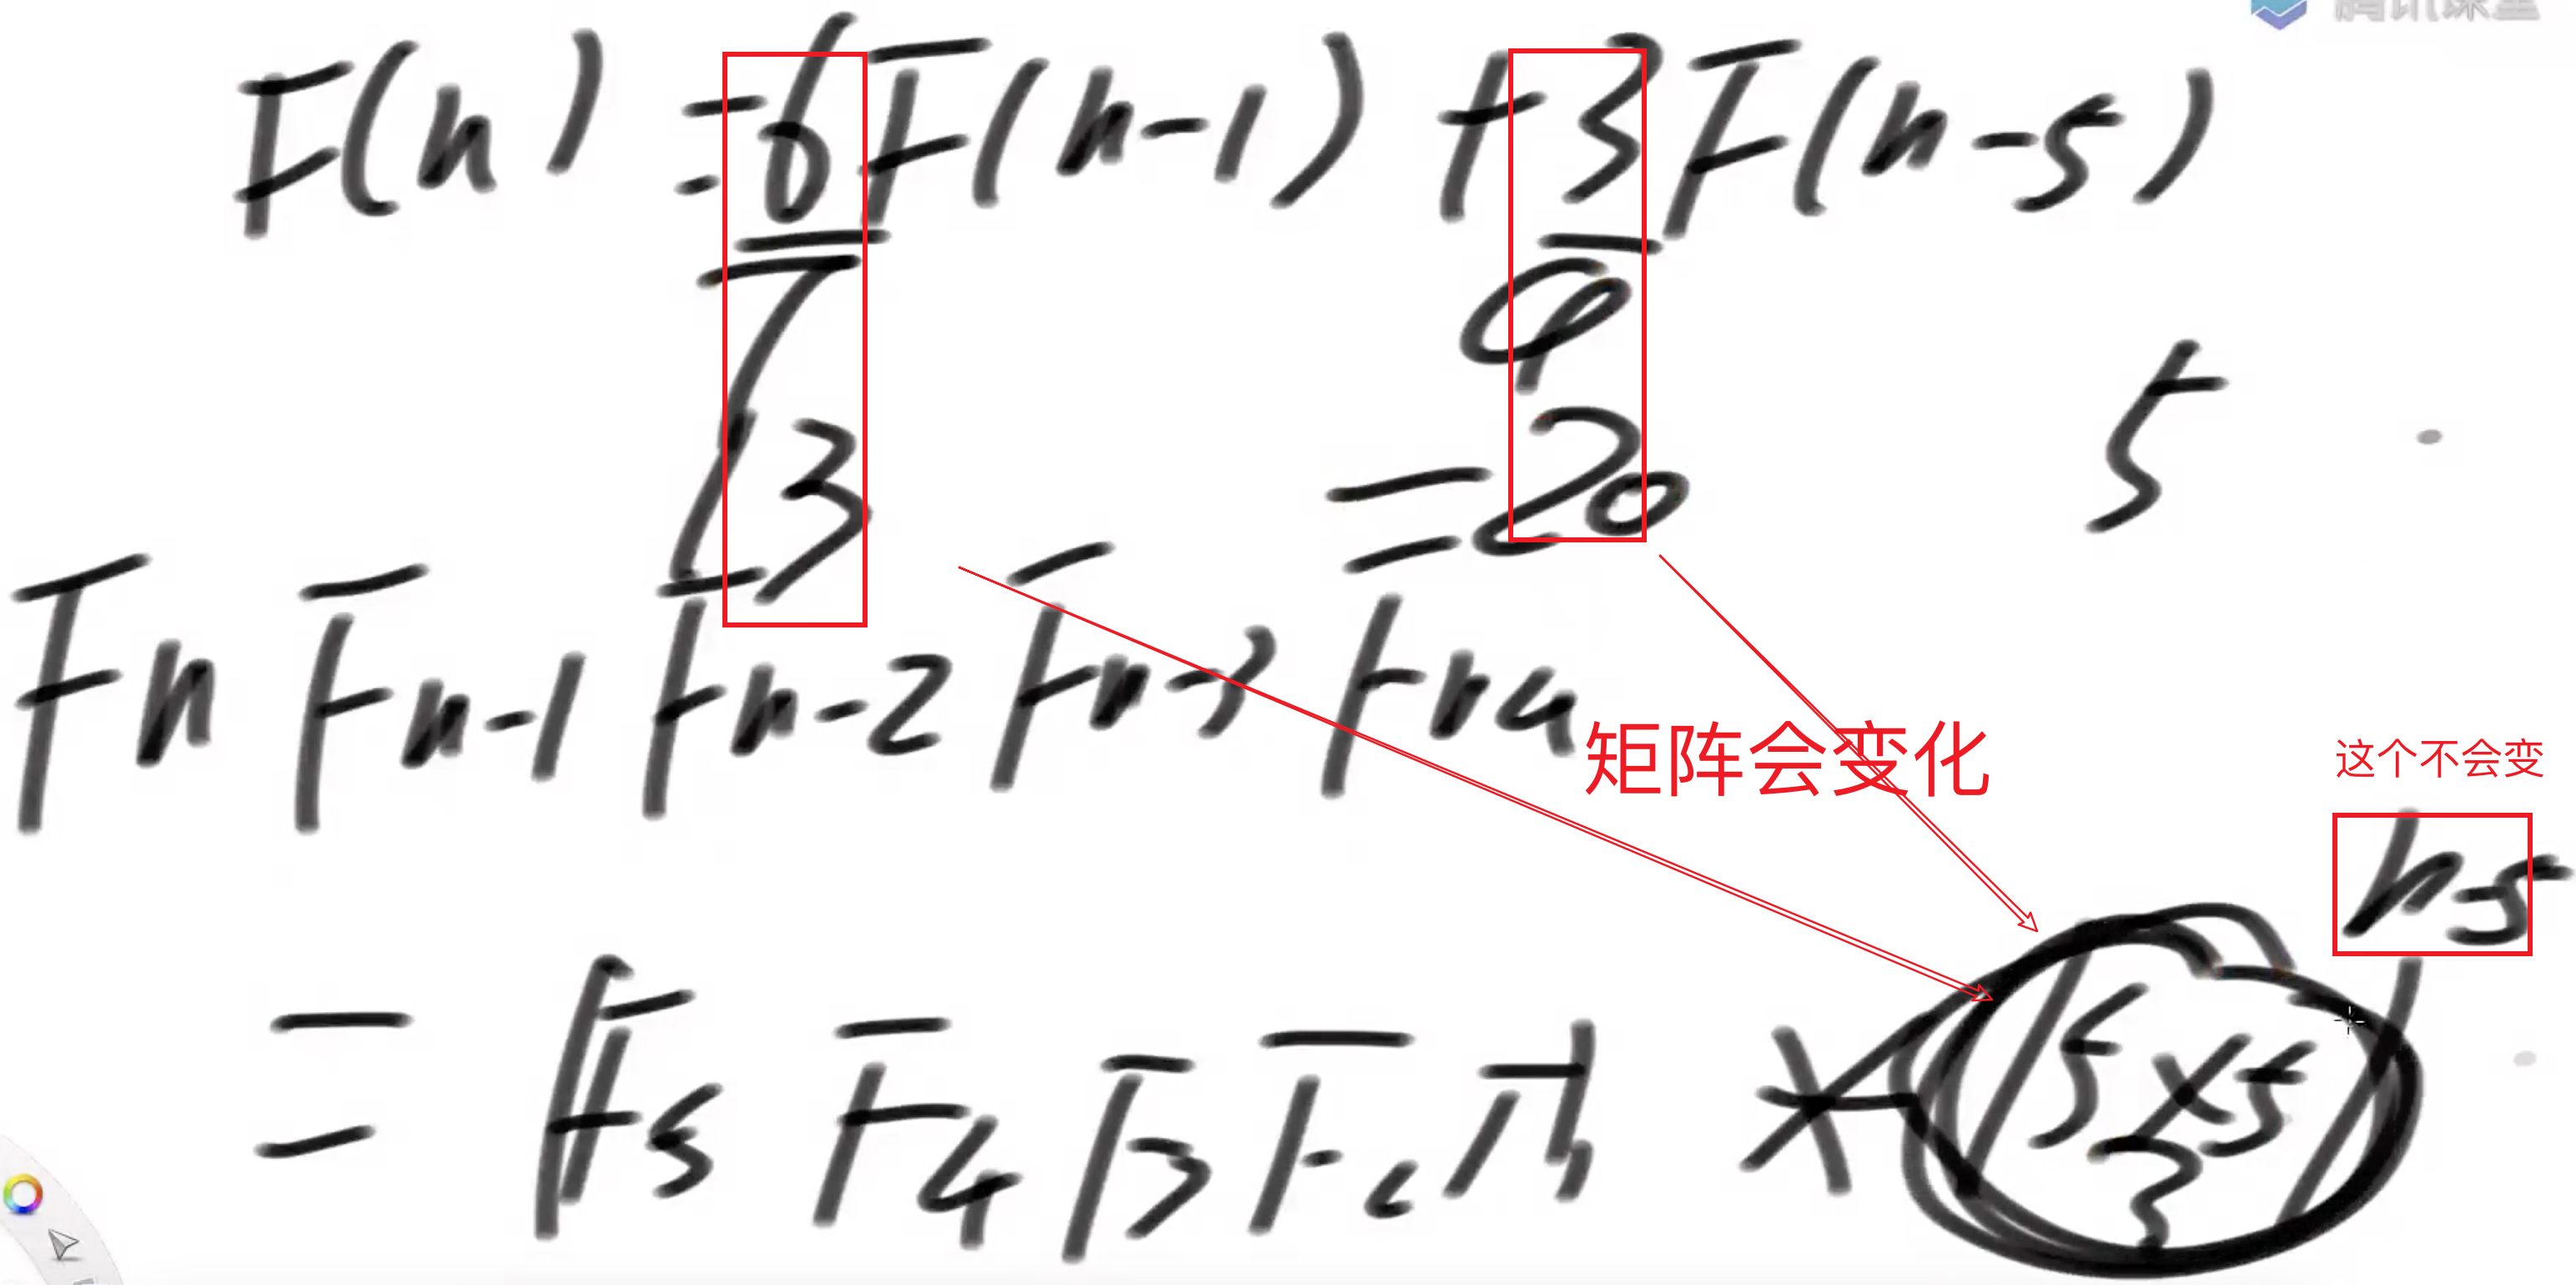 腾讯课堂
F(n) = 6F(n-1) + 3F(n-5)
7 9
13 = 20 5
Fn Fn-1 Fn-2 Fn-3 Fn-4
矩阵会变化 这个不会变
n-5
= |F5 F4 F3 F2 F1| × |5×5|
?